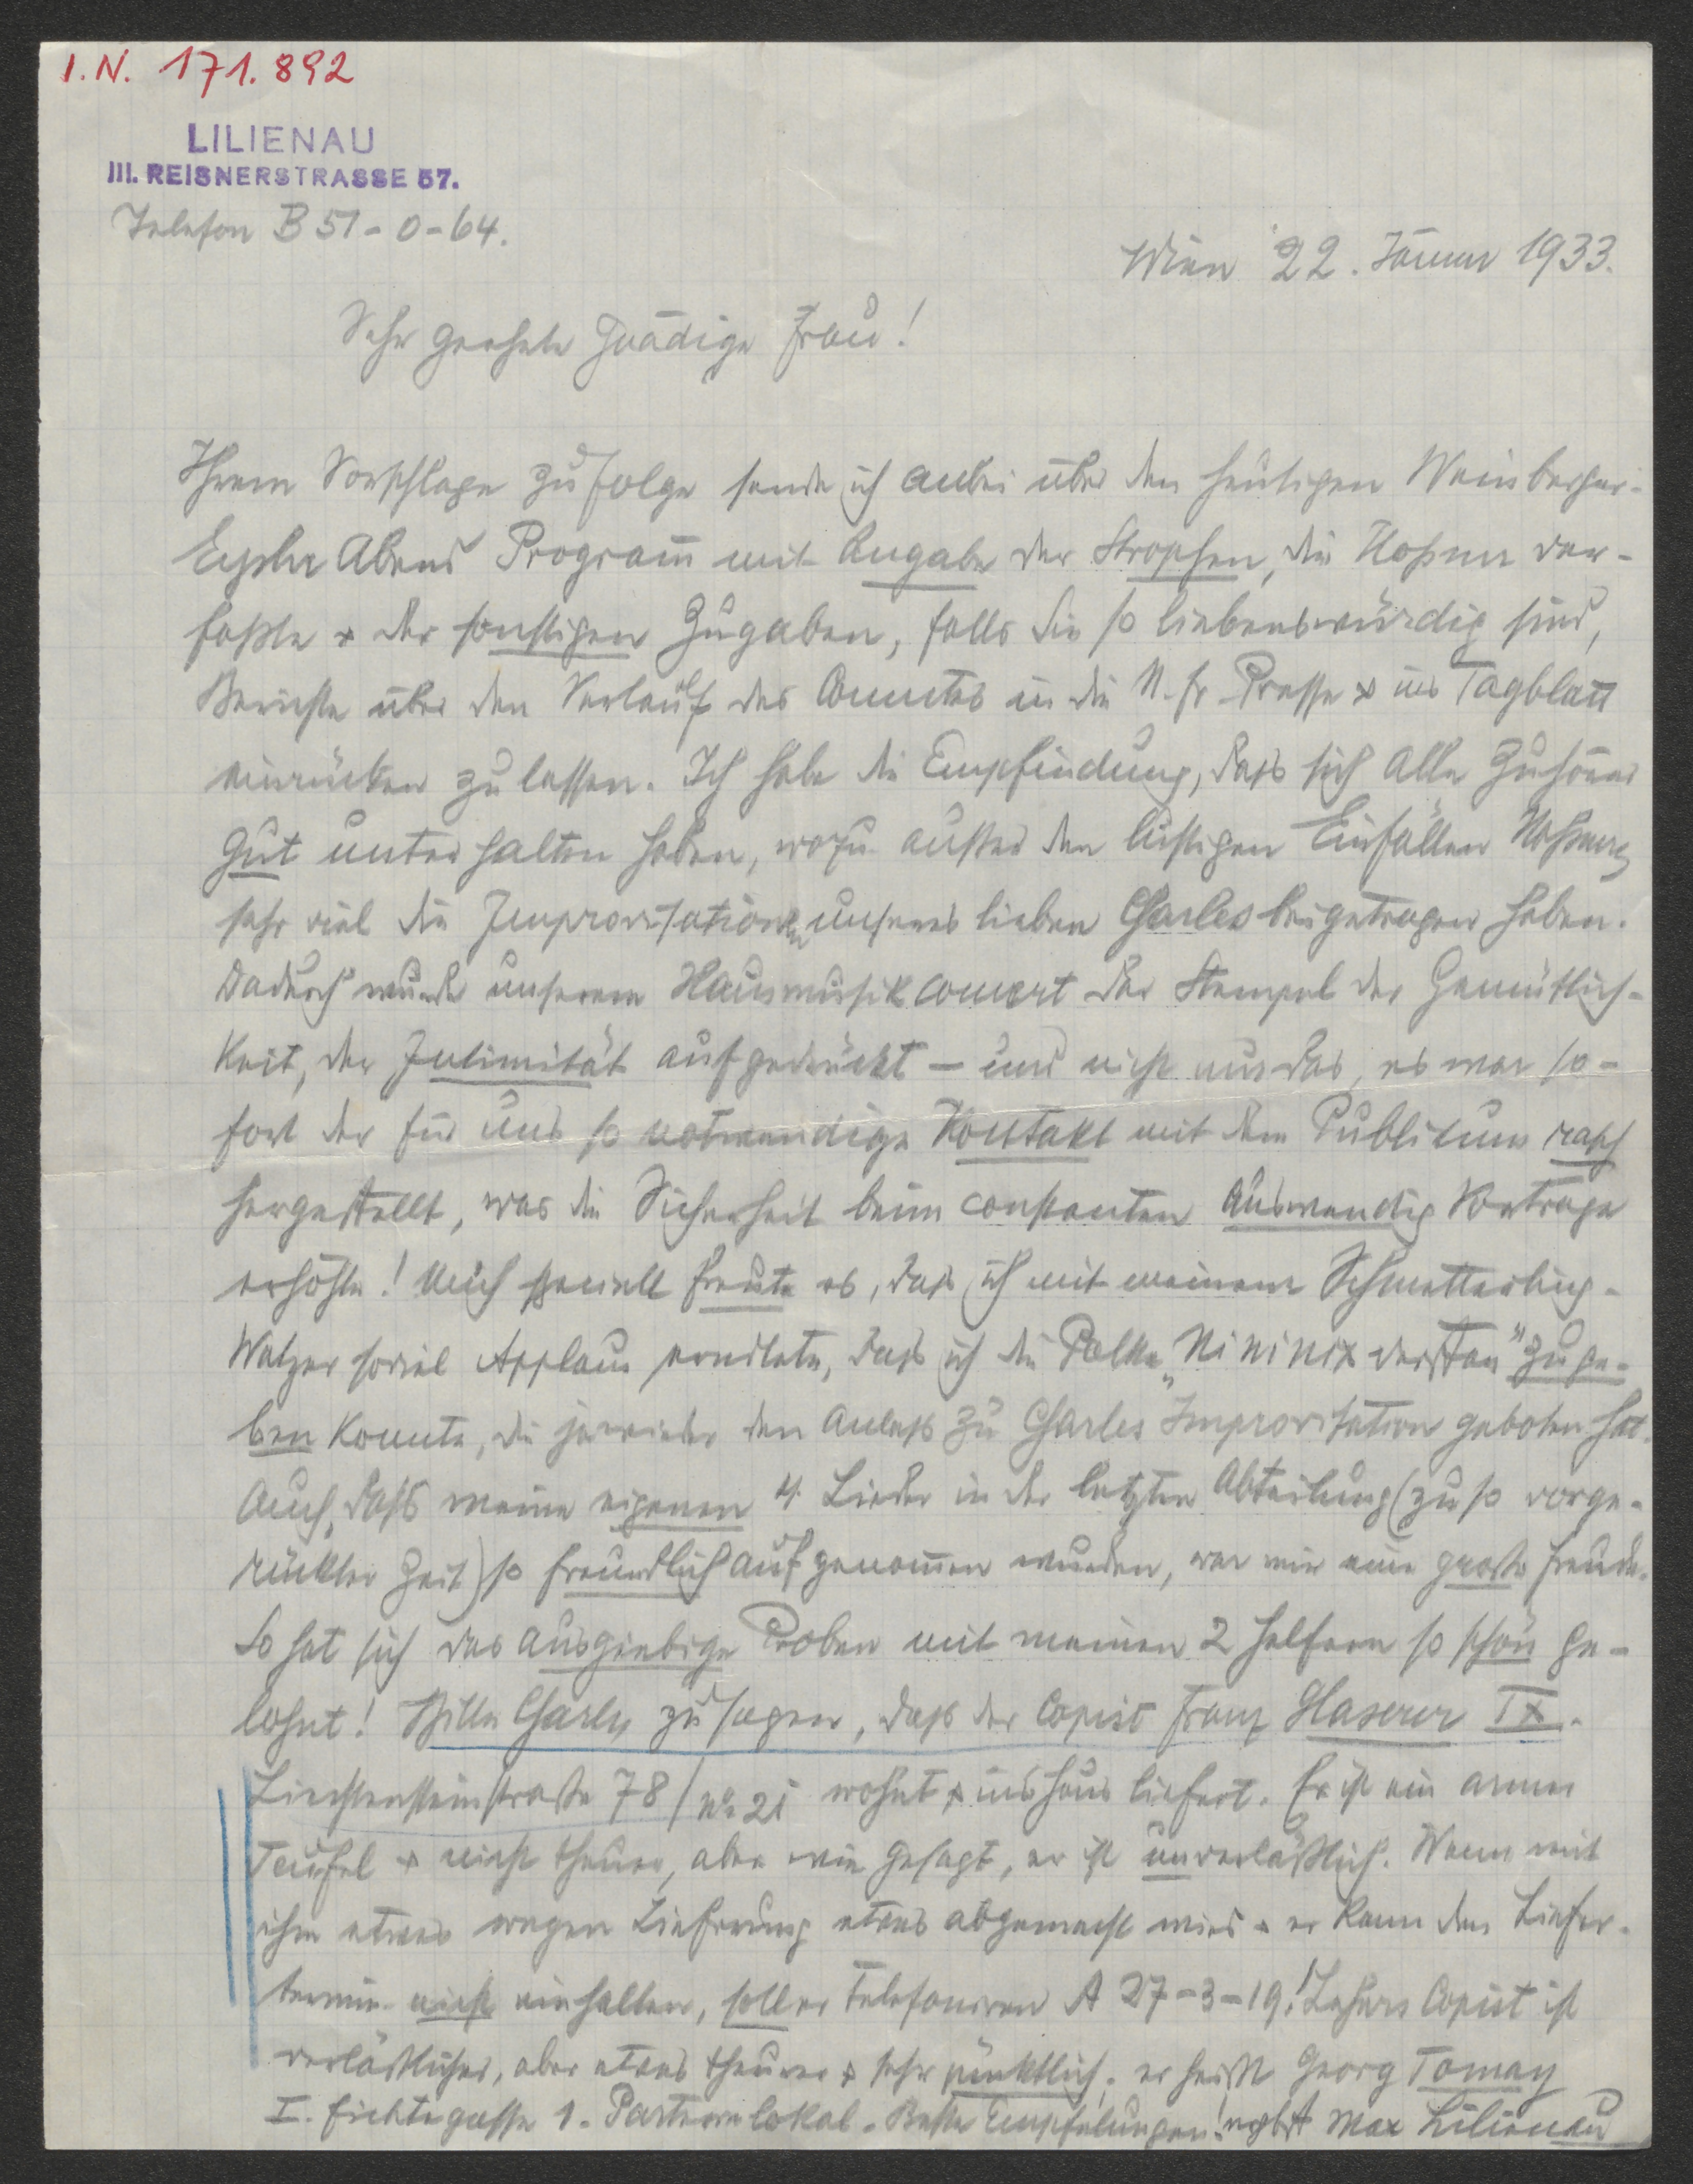 I.N. 171.892
LILIENAU
III. REISNERSTRASSE 57.
Telefon B 51-0-64.
Wien 22. Jänner 1933.
Sehr geehrte Gnädige Frau!
Ihrem Vorschlage zufolge sende ich anbei über den heutigen Weinberger-
Eysler Abend Programm mit Angabe der Strophen, die Hoßner ver-
faßte & der sonstigen Zugaben, falls Sie so liebenswürdig sind,
Berichte über den Verlauf des Concertes in die N. fr. Presse & ins Tagblatt
einrücken zu lassen. Ich habe die Empfindung, dass sich alle Zuhörer
gut unterhalten haben, wozu außer den lustigen Einfällen
sehr viel die Improvisationen unseres lieben Charles beigetragen haben.
Dadurch wurde unserem Hausmusikconcert der Stempel der Gemütlich-
keit, der Intimität aufgedrückt – und nicht nur das, es war so-
fort der für uns so notwendige Kontakt mit dem Publikum rasch
hergestellt, was die Sicherheit beim constanten Auswendig Vortrage
erhöhte! Mich speciell freute es, dass ich mit meinem Schmetterling-
Walzer soviel Applaus erntete, dass ich die Polka „Nininix verstan" zuge-
ben konnte, die ja wieder den Anlass zu Charles Improvisation geboten hat.
Auch, dass meine eigenen 4 Lieder in der letzten Abteilung (zu so vorge-
rückter Zeit) so freundlich aufgenommen wurden, war mir eine große Freude.
So hat sich das ausgiebige Proben mit meinen 2 Helfern so schön ge-
lohnt! Bitte Charly zu sagen, dass der Copist Franz Haserer IX.
Liechtensteinstraße 78/no 21 wohnt & ins Haus liefert. Er ist ein armer
Teufel & nicht theuer, aber wie gesagt, er ist unverläßlich. Wenn mit
ihm etwas wegen Lieferung etwas abgemacht wird & er kann den Liefer-
termin nicht einhalten, soll er telefonieren A 27-3-19! Lehars Copist ist
verläßlicher, aber etwas theurer & sehr pünktlich; er heißt Georg Tomay
I. Fichtegasse 1. Parterrelokal. Beste Empfehlungen! ergbst Max Lilienau